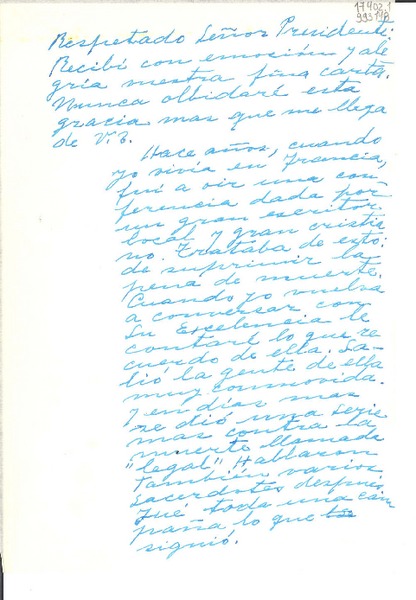 17402,1
993148
Respetado Señor Presidente:
Recibí con emoción y ale
gría vuestra fina carta.
Nunca olbidaré esta
gracia mas que me llega
de V.E.
Hace años, cuando
yo vivía en Francia,
fuí a oir una con
ferencia dada por
un gran escritor
local y gran cristia
no. Trataba de esto:
de suprimir la
pena de muerte.
Cuando yo vuelva
a conversar con
Su Excelencia le
contaré lo que re
cuerdo de ella. Sa-
lió la gente de ella
muy conmovida.
Y en días mas
se dió una serie
mas contra la
muerte llamada
"legal". Hablaron
también varios
sacerdotes después.
Fué toda una cam
paña, lo que
siguió.